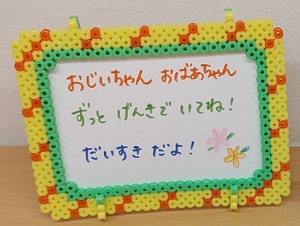 おじいちゃん おばあちゃん
ずっと げんきで いてね!
だいすき だよ!